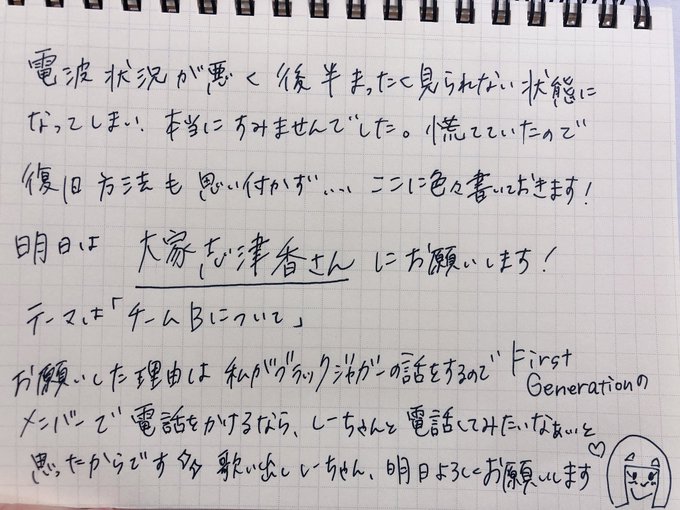 電波状況が悪く後半まったく見られない状態に
なってしまい、本当にすみませんでした。慌てていたので
復旧方法も思い付かず... ここに色々書いておきます!
明日は 大家志津香さん にお願いします!
テーマは「チームBについて」
お願いした理由は私がブラックジャガーの話をするので First Generationの
メンバーで電話をかけるなら、しーちゃんと電話してみたいなぁぃと
思ったからです 歌い出ししーちゃん、明日よろしくお願いします♡